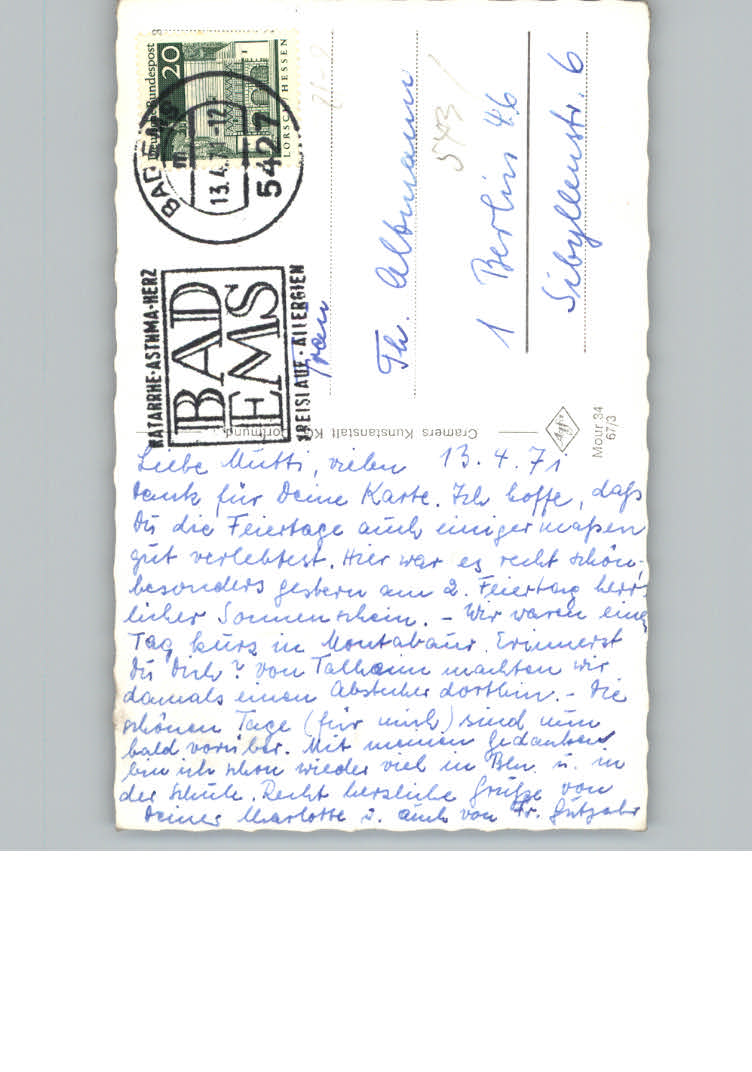 Deutsche Bundespost
20
LORSCH / HESSEN
BAD EMS
13.4.71-12
5427
KATARRHE·ASTHMA·HERZ
BAD
EMS
KREISLAUF·ALLERGIEN
Frau
Th. Altmann
543/
1 Berlin 46
Sibyllenstr. 6
Cramers Kunstanstalt KG, Dortmund
Agfa
Mour 34
67/3
13.4.71
Liebe Mutti, vielen
Dank für Deine Karte. Ich hoffe, daß
Du die Feiertage auch einigermaßen
gut verlebtest. Hier war es recht schön,
besonders gestern am 2. Feiertag herr-
licher Sonnenschein. - Wir waren einen
Tag kurz in Montabaur. Erinnerst
Du Dich? Von Talheim machten wir
damals einen Abstecher dorthin. - Die
schönen Tage (für mich) sind nun
bald vorüber. Mit meinen Gedanken
bin ich schon wieder viel in Bln. u. in
der Schule. Recht herzliche Grüße von
Deiner Marlotte u. auch von Fr. Gutjahr